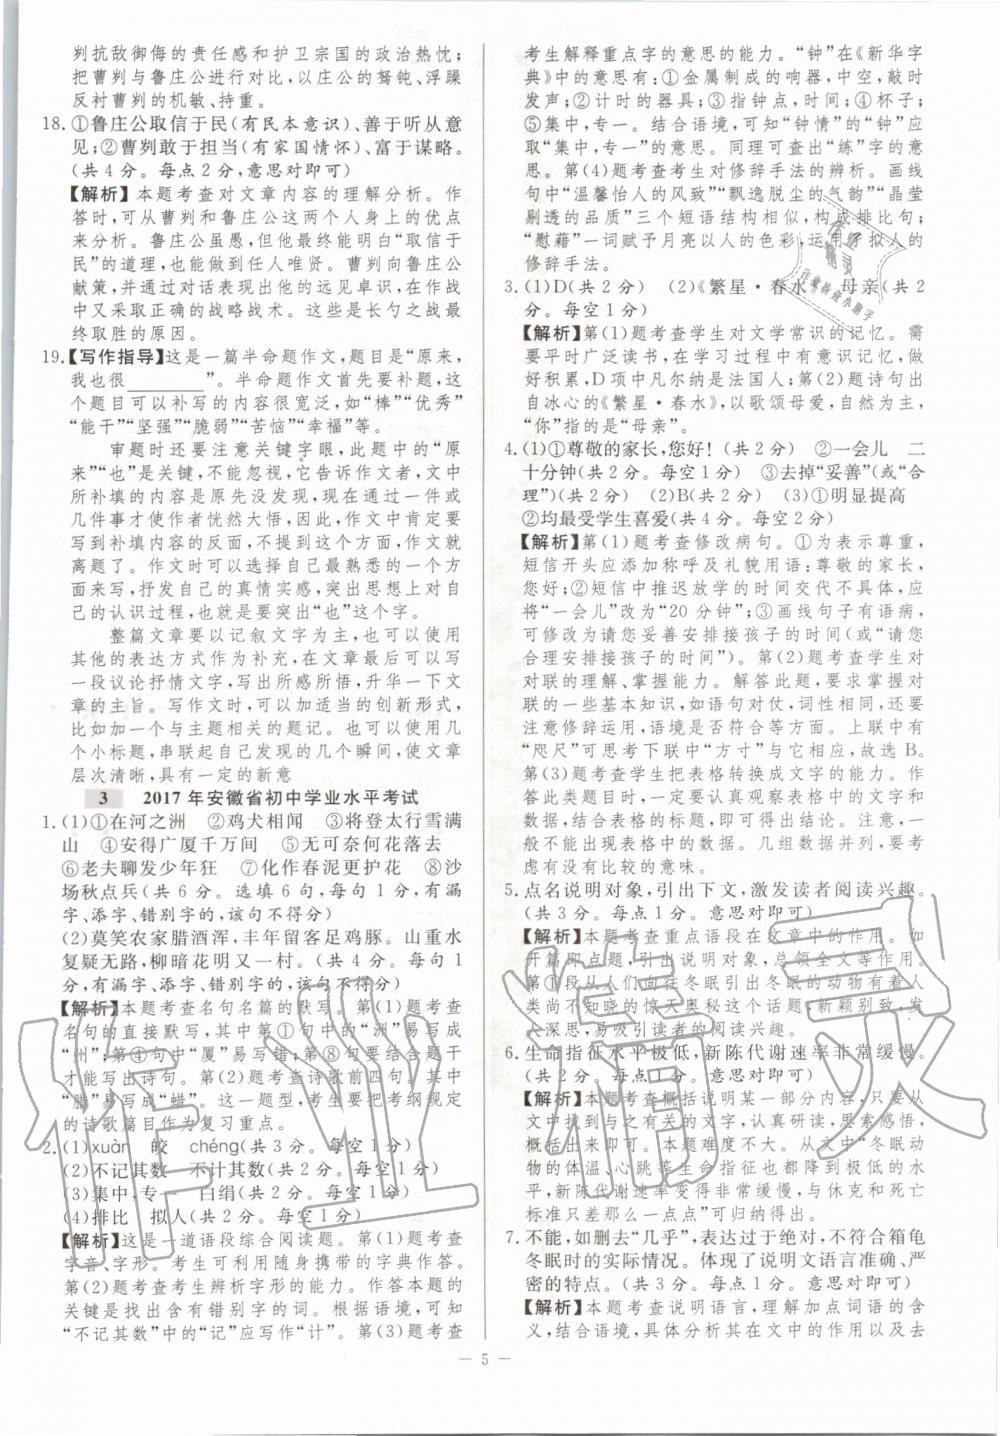 判抗敌御侮的责任感和护卫宗国的政治热忱；
把曹刿与鲁庄公进行对比，以庄公的驽钝、浮躁
反衬曹刿的机敏、持重。
18. ①鲁庄公取信于民(有民本意识)、善于听从意
见；②曹刿敢于担当(有家国情怀)、富于谋略。
(共4分。每点2分，意思对即可)
【解析】本题考查对文章内容的理解分析。作
答时，可从曹刿和鲁庄公这两个人身上的优点
来大做文章。鲁庄公虽愚，但最终能明白“取信于
民”的道理，也能做到任人唯贤。曹刿向鲁庄公
献策，并通过对话表现出他的远见卓识，在作战
中又采取正确的战略战术。这些是长勺之战最
终取胜的原因。
19.【写作指导】这是一篇半命题作文，题目是“原来，
我也很________”。半命题作文首先要补题，这
个题目可以补写的内容很宽泛，如“棒”“优秀”
“能干”“坚强”“脆弱”“苦恼”“幸福”等。
审题时还要注意关键字眼，此题中的“原
来”“也”是关键，不能忽视，它告诉作文者，文中
所补填的内容是原先没发现，现在通过一件或
几件事才使作者恍然大悟，因此，作文中肯定要
写到补填内容的反面，不提到这些反面，作文就
离题了。作文时可选自己最熟悉的一个方面
写，抒发自己的真情实感，突出思想上对自己
的认识过程，也就是要突出“也”这个字。
整篇文章要以记叙文字为主，也可以使用
其他的表达方式作为补充，在文章最后可以写
一段议论抒情文字，写出所感所悟，升华一下文
章的主旨。写作文时，可以加适当的创新形式，
比如加一个与主题相关的题记。也可以使用几
个小标题，串联起自己某几个瞬间，使文章
层次清晰，具有一定的新意
3 2017年安徽省初中学业水平考试
1. (1)①在河之洲 ②鸡犬相闻 ③将登太行雪满
山 ④安得广厦千万间 ⑤无可奈何花落去
⑥老夫聊发少年狂 ⑦化作春泥更护花 ⑧沙
场秋点兵(共6分。选填6句，每句1分，有漏
字、添字、错别字的，该句不得分)
(2)莫笑农家腊酒浑，丰年留客足鸡豚。山重水
复疑无路，柳暗花明又一村。(共4分。每句1
分，有漏字、添字、错别字的，该句不得分)
【解析】本题考查名句名篇的默写。第(1)题考查
名句的直接默写，其中第①句中的“洲”易写成
“州”；第④句中“厦”易写错；第⑧句要结合题干
才能写出诗句。第(2)题考查诗歌前四句，其中
“腊”易写成“蜡”。这一题型，要把考纲规定的
的诗歌篇目作为复习重点。
2. (1)xuàn 皎 chéng(共3分。每空1分)
(2)不记其数 不计其数(共2分。每空1分)
(3)集中，专一 白绢(共2分。每空1分)
(4)排比 拟人(共2分。每空1分)
【解析】这是一道语段综合阅读题。第(1)题考查
字音、字形。考生可利用随身携带的字典作答。
第(2)题考查考生辨析字形的能力。作答本题的
关键是找出含有错别字的词。根据语境，可知
“不记其数”中的“记”应写作“计”。第(3)题考查
考生解释重点字的意思的能力。“钟”在《新华字
典》中的意思有：①金属制成的响器，中空，敲时
发声；②计时的器具；③指钟点，时间；④杯子；
⑤集中，专一。结合语境，可知“钟情”的“钟”应
取“集中，专一”的意思。同理可查出“练”字的意
思。第(4)题考查考生对修辞手法的辨析。画线
句中“温馨怡人的风致”“飘逸脱尘的气韵”“晶莹
剔透的品质”三个短语结构相似，构成排比句；
“慰藉”一词赋予月亮以人的色彩，运用了拟人的
修辞手法。
3. (1)D(共2分) (2)《繁星·春水》 母亲(共2
分。每空1分)
【解析】第(1)题考查学生对文学常识的记忆。需
要平时广泛读书，在学习过程中有意识记忆，做
好积累，D项中凡尔纳是法国人；第(2)题诗句出
自冰心的《繁星·春水》，以歌颂母爱，自然的。
“你”指的是“母亲”。
4. (1)①尊敬的家长，您好！(共2分) ②一会儿 二
十分钟(共2分。每空1分) ③去掉“妥善”(或“合
理”)(共2分) (2)B(共2分) (3)①明显提高
②均最受学生喜爱(共4分。每空2分)
【解析】第(1)题考查修改病句。①为表示尊重，
短信开头应添加称呼及礼貌用语：尊敬的家长，
您好；②短信中推迟放学的时间交代不具体，应
将“一会儿”改为“20分钟”；③画线句子有语病，
可修改为请您妥善安排接孩子的时间(或“请您
合理安排接孩子的时间)。第(2)题考查学生对
对联的理解、掌握能力。解答此题，要求掌握对
联的一些基本知识，如语句对仗，词性相同，还要
注意修辞运用，语境是否符合等方面。上联中有
“咫尺”可思考下联中“方寸”与它相应，故选B。
第(3)题考查学生把表格材料转换成文字的能
力。做此类题目，一定要认真观察表格中的文字和
数据，结合表格的标题，即可得出结论。注意，一
般不能出现表格中的数据。几组数据并列，要考
虑有没有比较的意味。
5. 点名说明对象，引出下文，激发读者阅读兴趣。
(共3分。每点1分。意思对即可)
【解析】本题考查重点语段在文章中的作用。如
开篇即点题，点明说明对象，总领全文等作用。
第①段从人们向往冬眠引出冬眠的动物有着人
类尚不知晓的惊天奥秘这个话题，新颖别致，发
人深思，易吸引读者的阅读兴趣。
6. 生命指征水平极低，新陈代谢速率非常缓慢。
(共3分。每点2分。意思对即可)
【解析】本题考查概括说明某一部分内容，只要从
文中找到与之有关的文字，认真研读，思索感悟，
概括出来即可。本题难度不大。从文中“冬眠动
物的体温、心跳等生命指征也会降到很低的水
平，新陈代谢速率变得非常缓慢，与休克和死亡
标准只差那么一点点”可归纳得出。
7. 不能，如删去“几乎”，表达过于绝对，不符合箱龟
冬眠时的实际情况。体现了说明文语言准确、严
密的特点。(共3分。每点1分。意思对即可)
【解析】本题考查说明语言，理解加点词语的含
义，结合语境，具体分析其在文中的作用以及去
— 5 —
作业精灵